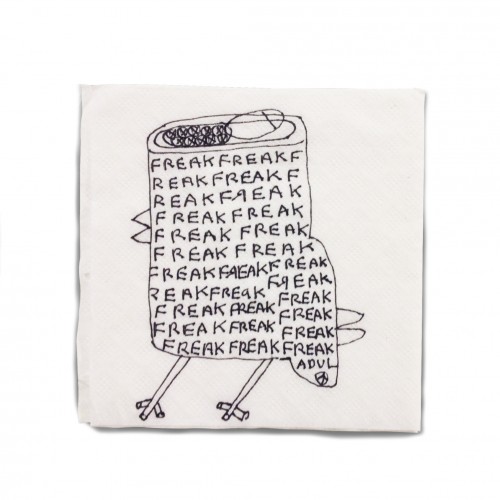 FREAKFREAKF
REAKFREAKF
REAKFREAK
FREAKFREAK
FREAK FREAK
FREAK FREAK
FREAKFREAKFREAK
FREAK
REAKFREAK
FREAK
FREAKFREAK
FREAK
FREAKFREAK
FREAK
FREAKFREAKFREAK
ADUL